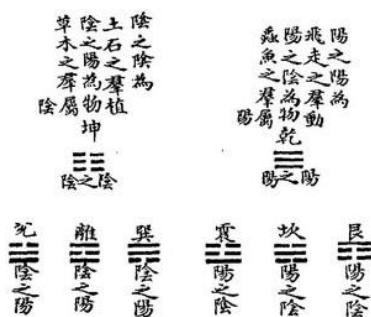 陽之陽為
飛走之羣動
陽之陰為物
蟲魚之羣屬
陽
乾
陽之陽
陰之陰為
土石之羣植
陰之陽為物
草木之羣屬
陰
坤
陰之陰
艮
陽之陰
坎
陽之陰
震
陽之陰
巽
陰之陽
離
陰之陽
兌
陰之陽